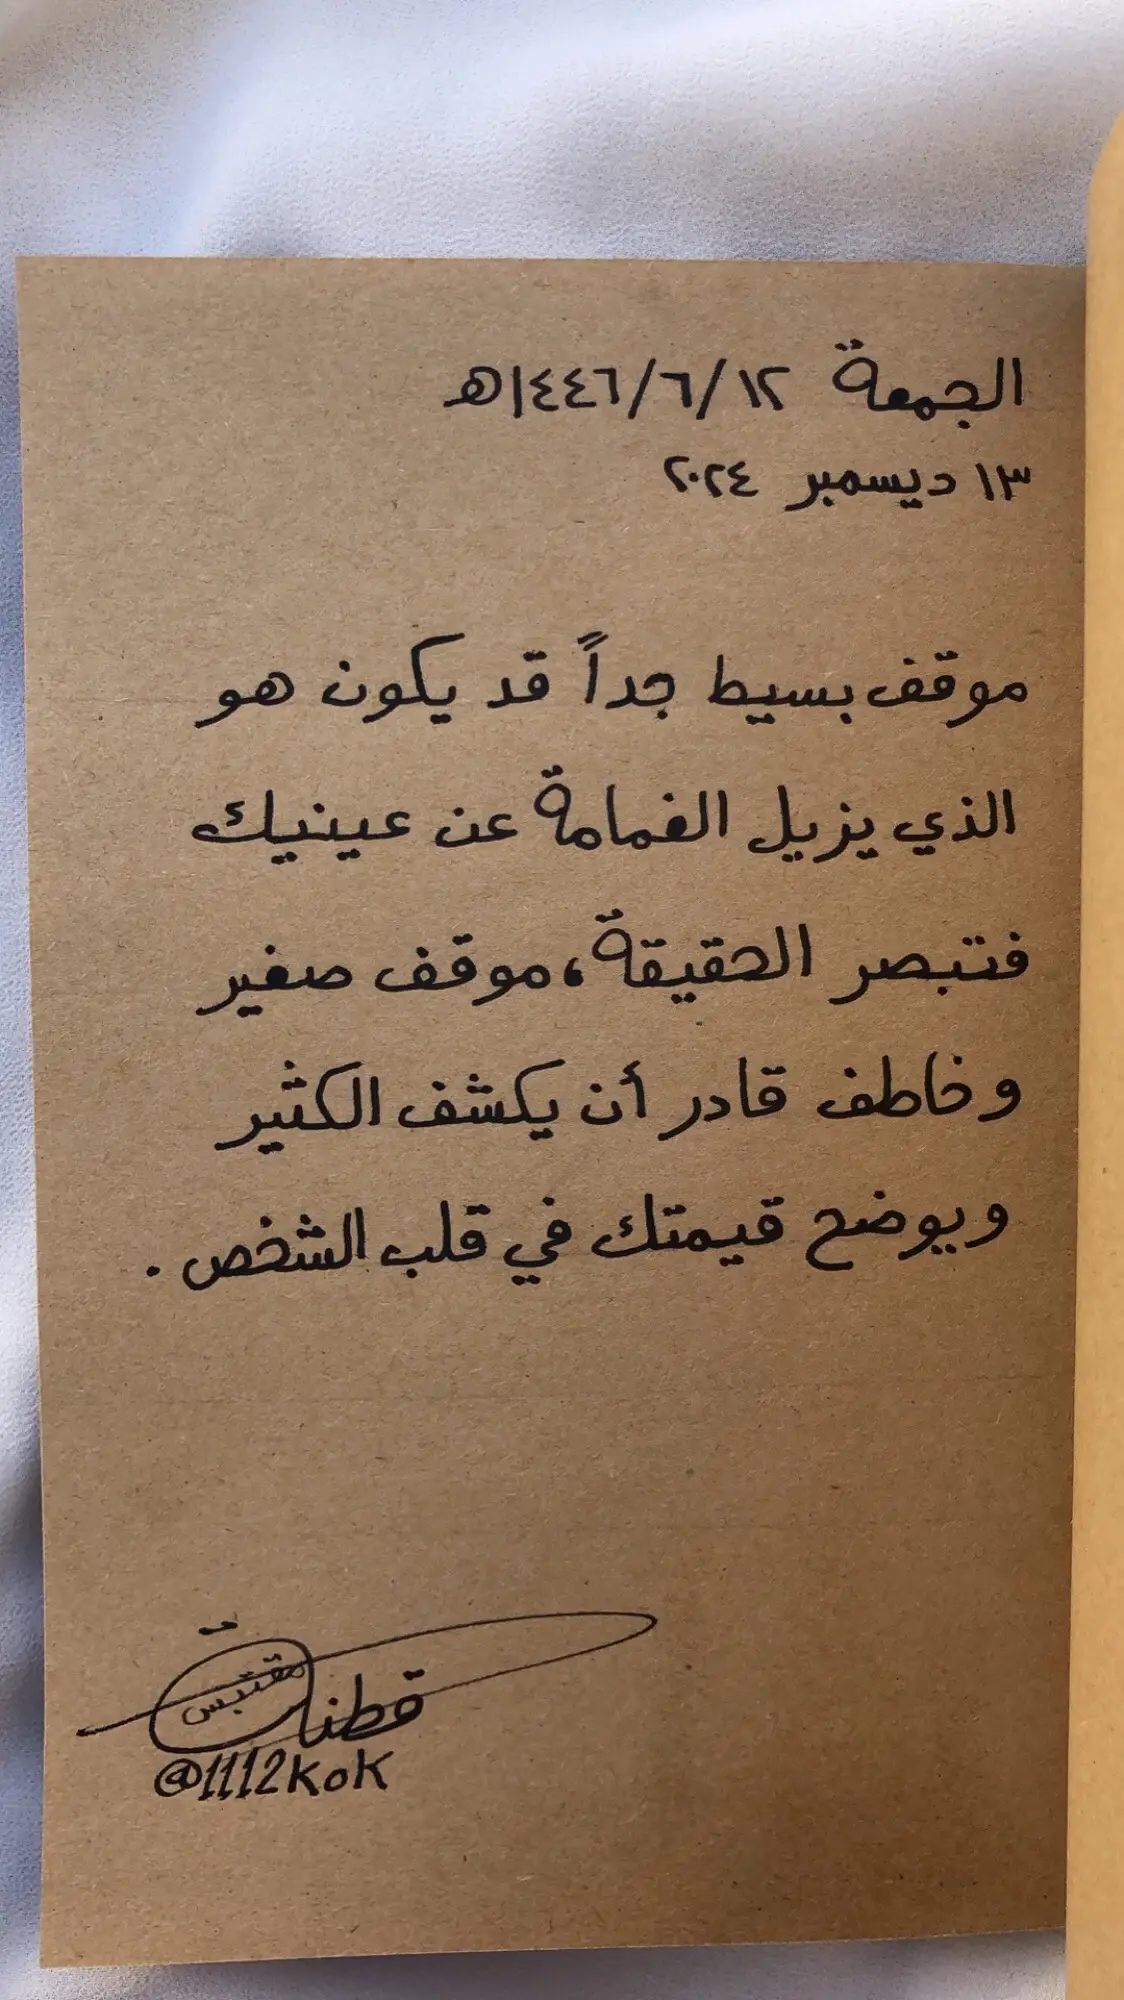 الجمعة ١٢/٦/١٤٤٦هـ
١٣ ديسمبر ٢٠٢٤
موقف بسيط جداً قد يكون هو
الذي يزيل الغمامة عن عينيك
فتبصر الحقيقة، موقف صغير
وخاطف قادر أن يكشف الكثير
ويوضح قيمتك في قلب الشخص.
مقتبس
@1112kok